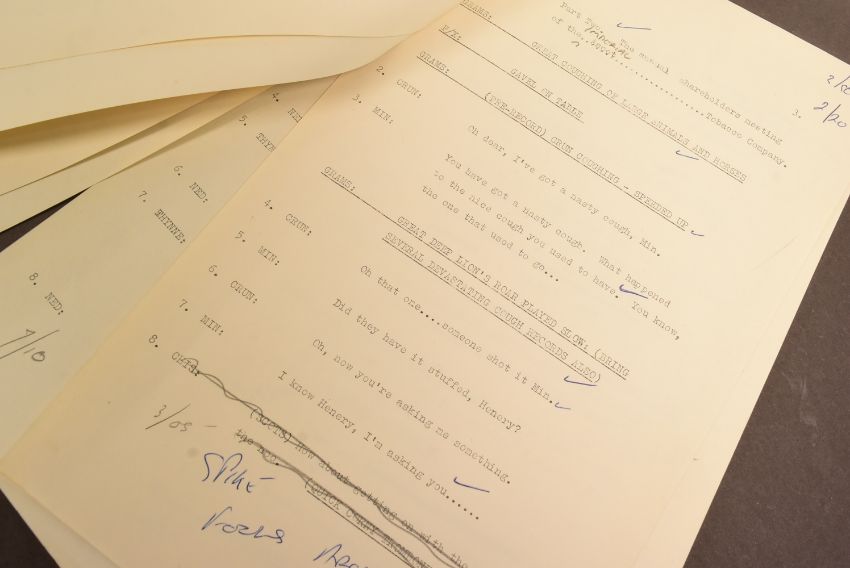 Part Two. The annual shareholders meeting
of the Tobacco Company.
3.
GRAMS: GREAT COUGHING OF LARGE ANIMALS AND HORSES
F/X: GAVEL ON TABLE
GRAMS: (PRE-RECORD) CRUN COUGHING - SPEEDED UP
2. CRUN: Oh dear, I've got a nasty cough, Min.
3. MIN: You have got a nasty cough. What happened
to the nice cough you used to have. You know,
the one that used to go...
GRAMS: GREAT DEEP LION'S ROAR PLAYED SLOW: (BRING
SEVERAL DEVASTATING COUGH RECORDS ALSO)
4. CRUN: Oh that one....someone shot it Min.
5. MIN: Did they have it stuffed, Henery?
6. CRUN: Oh, now you're asking me something.
7. MIN: I know Henery, I'm asking you......
8. (SCOTS) How about getting on with the
3/05 -
SPIKE
4. NED:
5.
6. NED:
7. WHYNNE:
8. NED:
7/10